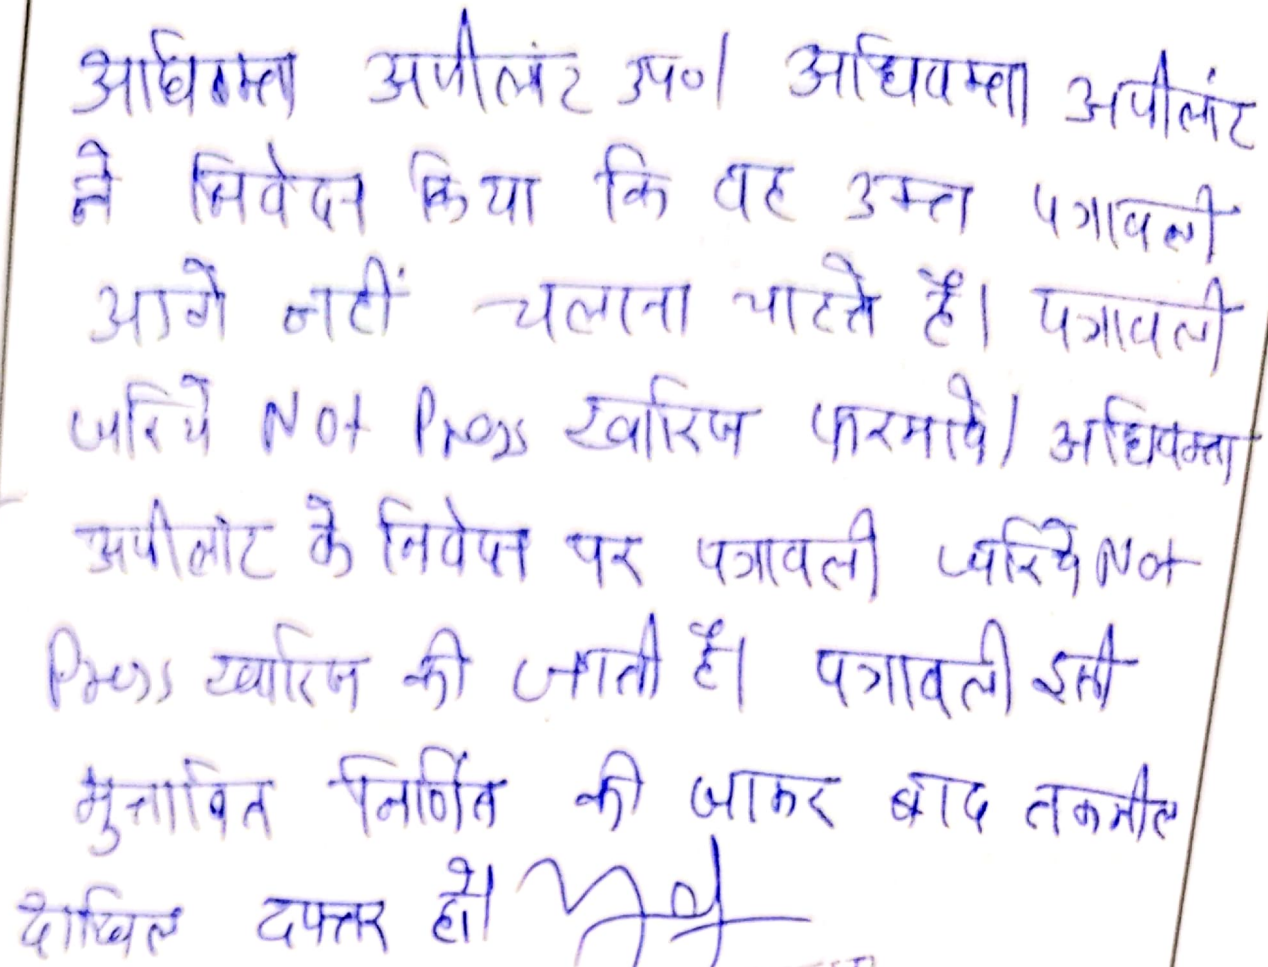 अधिवक्ता अपीलांट उप०। अधिवक्ता अपीलांट
ने निवेदन किया कि वह उक्त पत्रावली
आगे नहीं चलाना चाहते हैं। पत्रावली
जरिये Not Press खारिज फरमावे। अधिवक्ता
अपीलांट के निवेदन पर पत्रावली जरिये Not
Press खारिज की जाती है। पत्रावली इसी
मुताबित निर्णित की जाकर बाद तकमील
दाखिल दफ्तर हो।